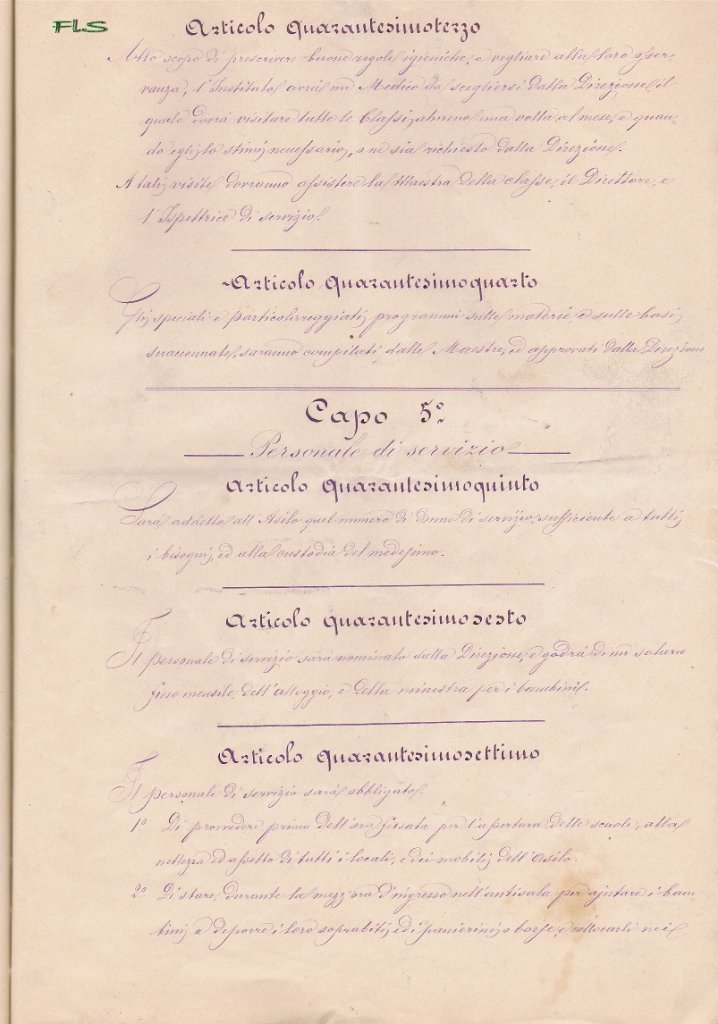 FLS
Articolo Quarantesimoterzo
Allo scopo di prescrivere buone regole igieniche, e vegliare alla loro osser-
vanza, l'Instituto avrà un Medico da scegliersi dalla Direzione, il
quale dovrà visitare tutte le Classi, almeno una volta al mese, e quan-
do egli lo stimi necessario, o ne sia richiesto dalla Direzione.
A tali visite dovranno assistere la Maestra della classe, il Direttore, e
l'Ispettrice di servizio.
Articolo Quarantesimoquarto
Gli speciali e particolareggiati programmi sulle materie e sulle basi
suaccennate, saranno compilati dalle Maestre, ed approvati dalla Direzione
Capo 5º
Personale di servizio
Articolo Quarantesimoquinto
Sarà addetto all'Asilo quel numero di donne di servizio, sufficiente a tutti
i bisogni, ed alla custodia del medesimo.
Articolo Quarantesimosesto
Il personale di servizio sarà nominato dalla Direzione, e godrà di un salario
fisso mensile, dell'alloggio, e della minestra per i bambini.
Articolo Quarantesimosettimo
Il personale di servizio sarà obbligato.
1º Di provvedere prima dell'ora fissata per l'apertura delle scuole, alla
nettezza ed assetto di tutti i locali, e dei mobili dell'Asilo.
2º Di stare, durante la mezz'ora d'ingresso nell'antisala per ajutare i bam-
bini a deporre i loro soprabiti, ed i panierini o borse e collocarli nei